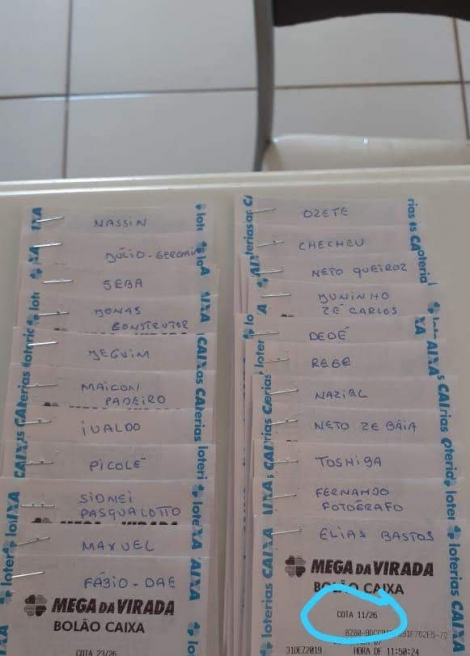 NASSIN
JÚLIO - GERONIMO
SEBA
JONAS
CONSTRUTOR
JEGUIM
MAICON
PADEIRO
IVALDO
PICOLÉ
SIDNEI
PASQUALOTTO
MAXUEL
FÁBIO - DAE
MEGA DA VIRADA
BOLÃO CAIXA
COTA 23/26
OZETE
CHECHEU
NETO QUEIROZ
JUNINHO
ZÉ CARLOS
DEDÉ
REGE
NAZIAL
NETO ZE BAIA
TOSHIBA
FERNANDO
FOTOGRAFO
ELIAS BASTOS
MEGA DA VIRADA
BOLÃO CAIXA
COTA 11/26
31DEZ2019 HORA DE 11:50:24